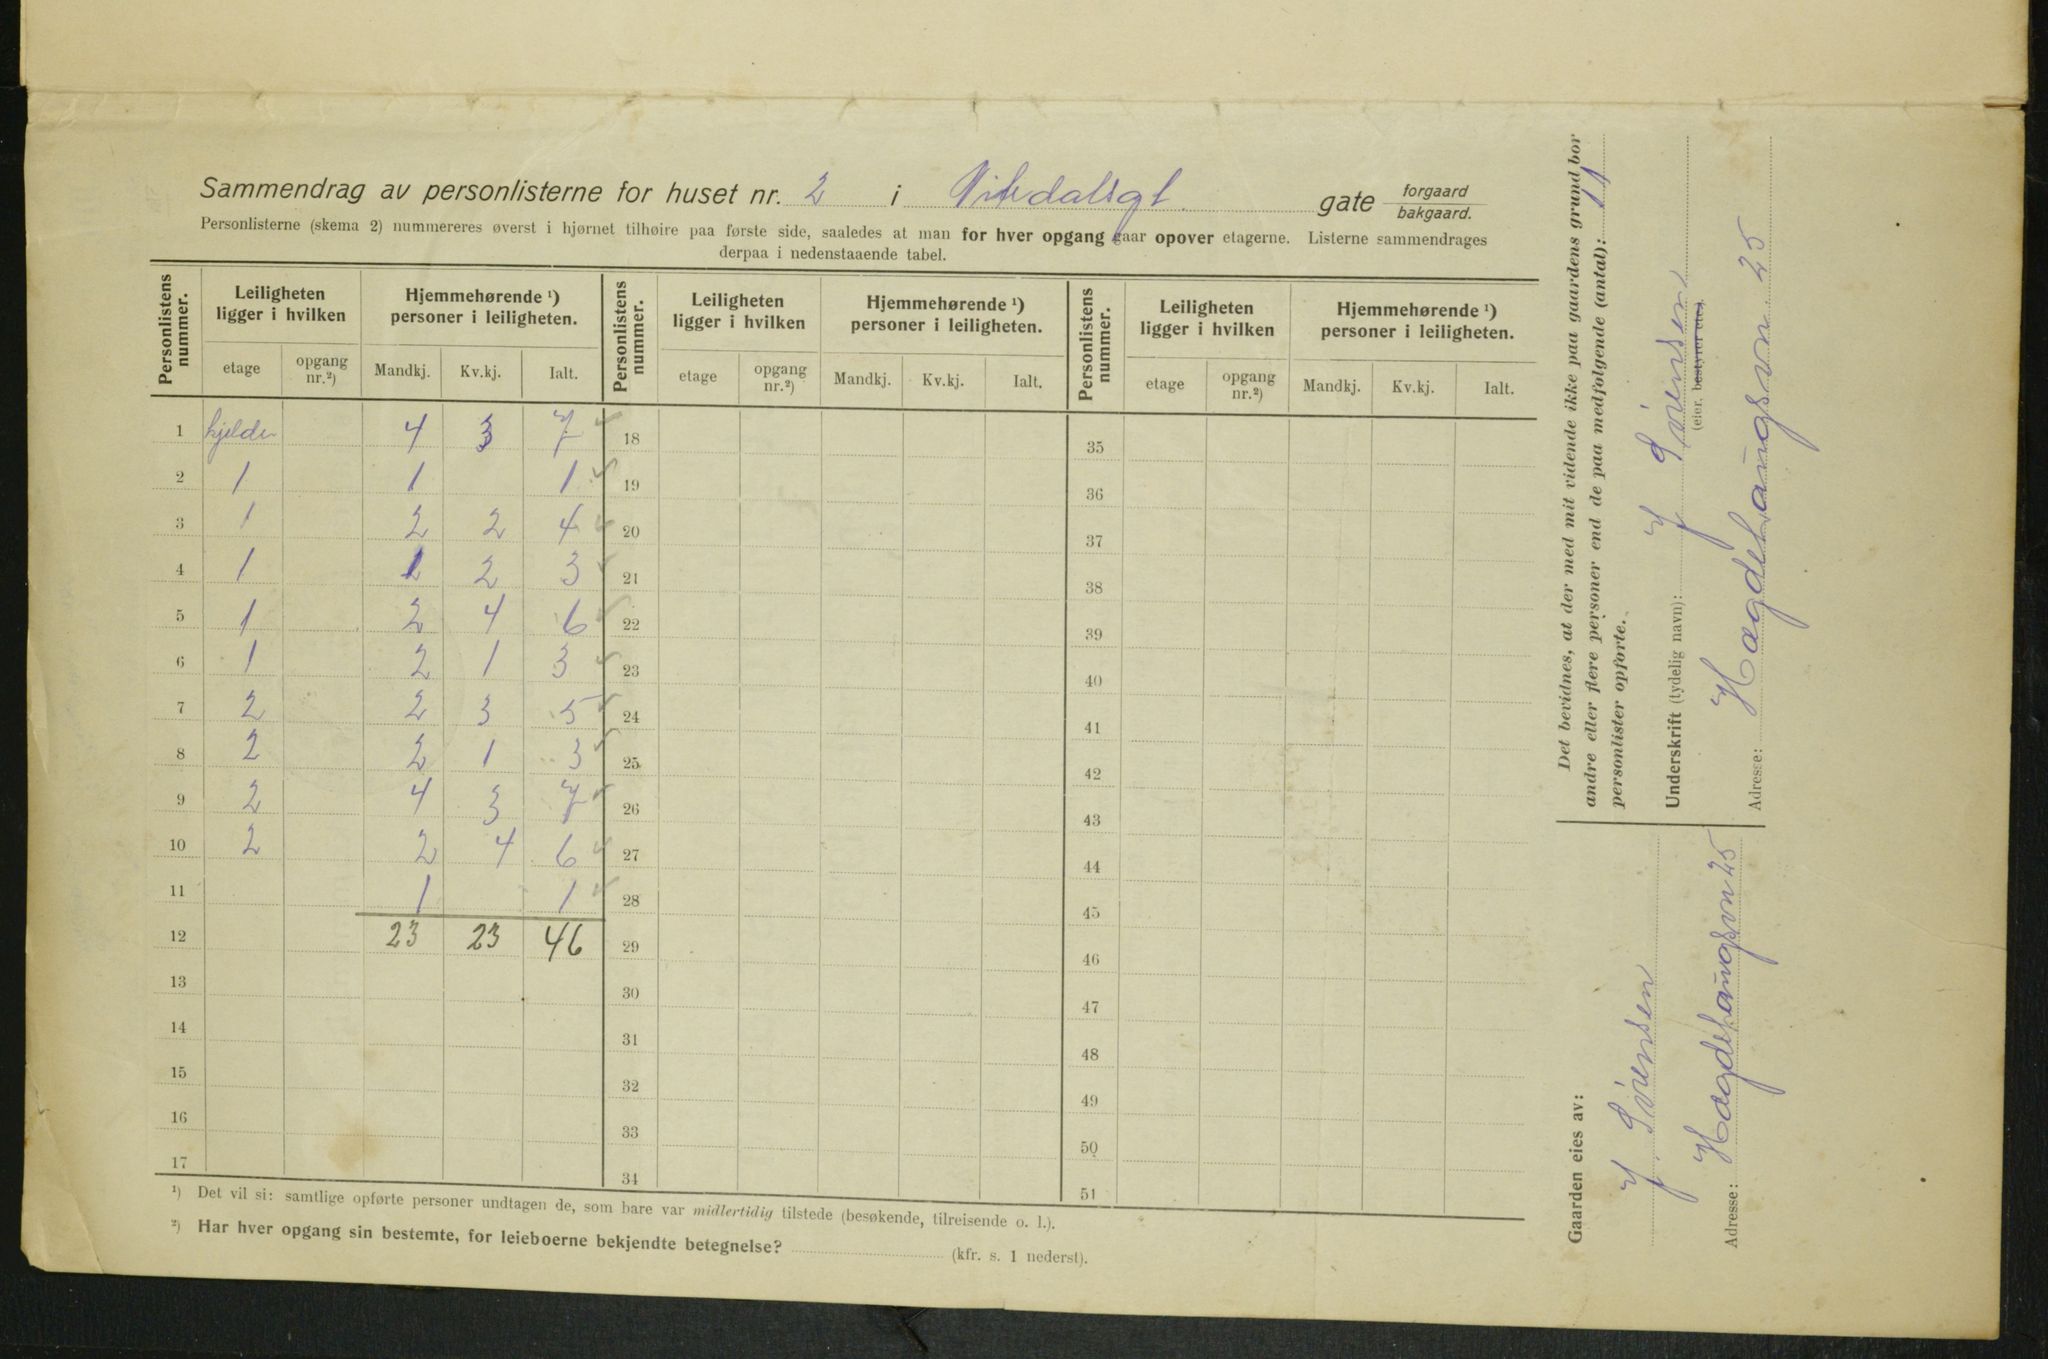 Sammendrag av personlisterne for huset nr. 2 i Nitedalsgt. gate forgaard
bakgaard.
Personlisterne (skema 2) nummereres øverst i hjørnet tilhøire paa første side, saaledes at man for hver opgang gaar opover etagerne. Listerne sammendrages
derpaa i nedenstaaende tabel.
Personlistens nummer. Leiligheten ligger i hvilken Hjemmehørende ¹) personer i leiligheten. Personlistens nummer. Leiligheten ligger i hvilken Hjemmehørende ¹) personer i leiligheten. Personlistens nummer. Leiligheten ligger i hvilken Hjemmehørende ¹) personer i leiligheten.
etage opgang nr.²) Mandkj. Kv.kj. Ialt. etage opgang nr.²) Mandkj. Kv.kj. Ialt. etage opgang nr.²) Mandkj. Kv.kj. Ialt.
1 kjelder 4 3 7 18 35
2 1 1 1 19 36
3 1 2 2 4 20 37
4 1 1 2 3 21 38
5 1 2 4 6 22 39
6 1 2 1 3 23 40
7 2 2 3 5 24 41
8 2 2 1 3 25 42
9 2 4 3 7 26 43
10 2 2 4 6 27 44
11 1 1 28 45
12 23 23 46 29 46
13 30 47
14 31 48
15 32 49
16 33 50
17 34 51
¹) Det vil si: samtlige opførte personer undtagen de, som bare var midlertidig tilstede (besøkende, tilreisende o. l.).
²) Har hver opgang sin bestemte, for leieboerne bekjendte betegnelse? (kfr. s. 1 nederst).
Det bevidnes, at der med mit vidende ikke paa gaardens grund bor
andre eller flere personer end de paa medfølgende (antal): 11
personlister opførte.
Underskrift (tydelig navn): J Svensen
(eier, bestyrer etc).
Adresse: Hægdehaugsvn. 25
Gaarden eies av:
J. Svensen
Adresse: Hægdehaugsvn 25